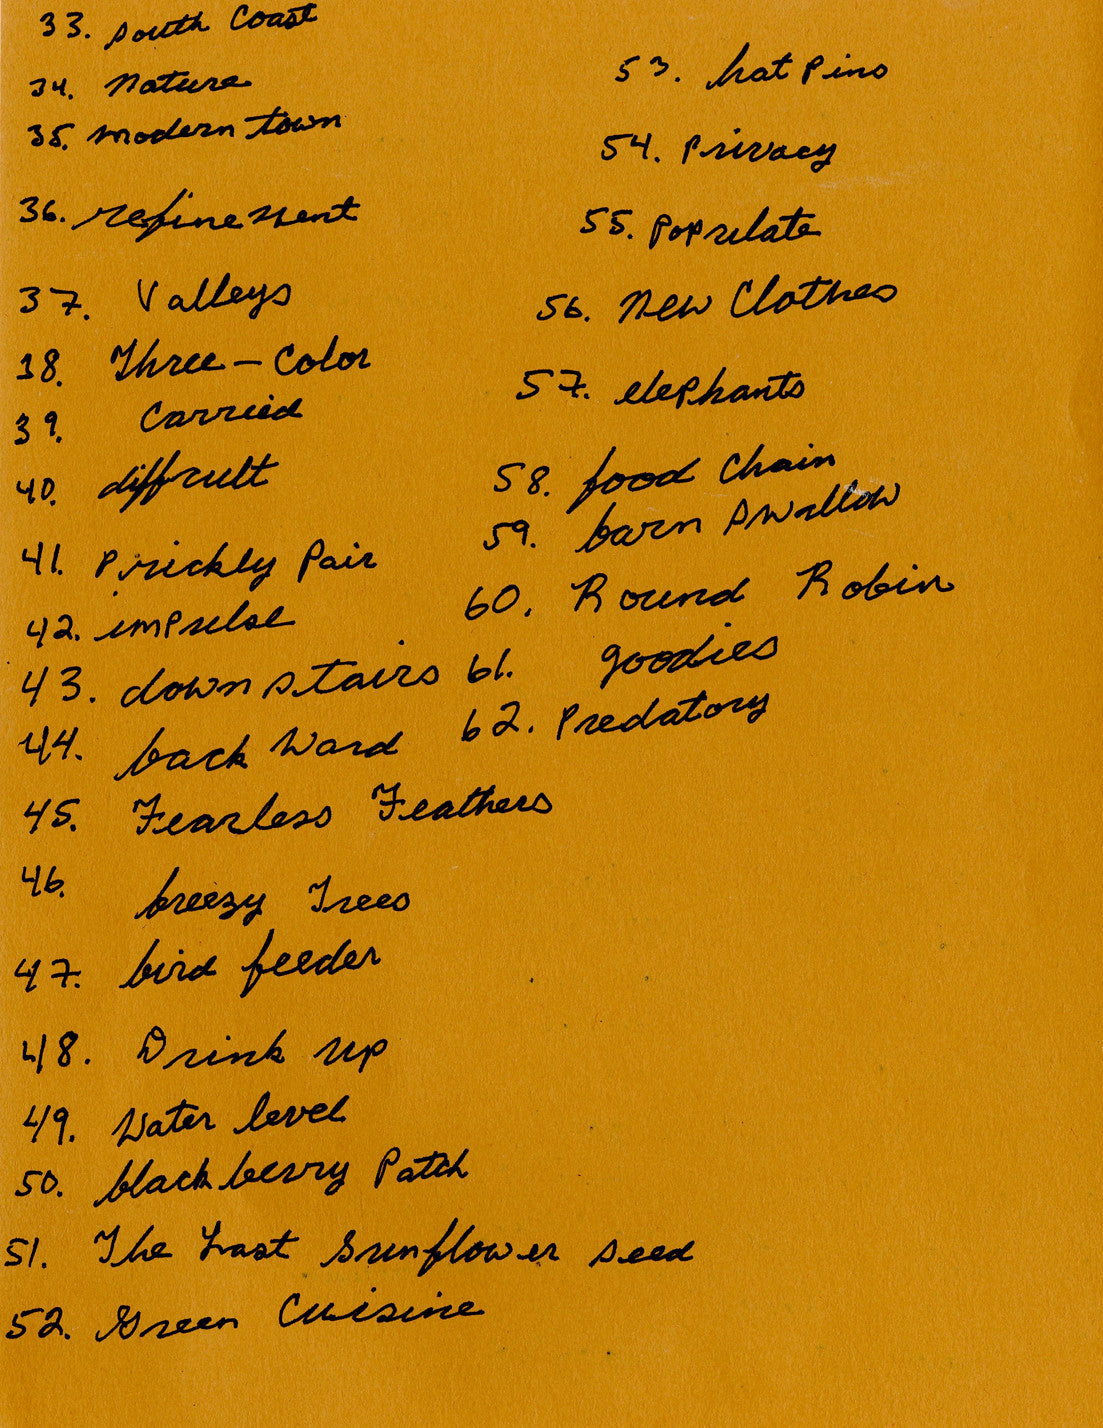 33. South Coast
34. Nature
35. modern town
36. refinement
37. Valleys
38. Three-Color
39. Carried
40. difficult
41. Prickly Pair
42. impulse
43. downstairs
44. backward
45. Fearless Feathers
46. breezy Trees
47. bird feeder
48. Drink up
49. Water level
50. blackberry Patch
51. The Last Sunflower seed
52. Green Cuisine
53. hat pins
54. Privacy
55. Populate
56. New Clothes
57. elephants
58. food Chain
59. barn swallow
60. Round Robin
61. goodies
62. Predatory